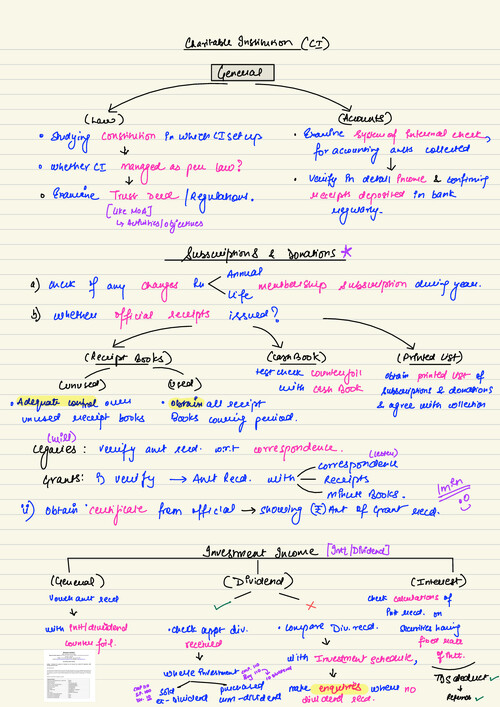 Charitable Institution (CI)
General
(Law)
(Accounts)
• Studying Constitution in which CI set up
• whether CI managed as per law?
• Examine Trust Deed / Regulations.
[Like MOA]
↳ Activities/objectives
• Examine System of Internal check,
for accounting amts collected
• Verify in detail Income & confirming
receipts deposited in bank
regularly.
Subscriptions & Donations *
a) check if any changes in < Annual
Life
membership subscription during year.
b) whether official receipts issued?
(Receipt Books)
(Cash Book)
(Printed List)
(unused)
(used)
• Adequate control over
unused receipt books
• obtain all receipt
Books covering period.
test check counterfoil
with cash Book
obtain printed list of
subscriptions & donations
& agree with collection
(will)
Legacies: verify amt recd. w.r.t correspondence.
(letter)
Grants: i) verify → Amt Recd. with
correspondence
Receipts
minute Books.
ii) obtain certificate from official → showing (₹) Amt of Grant recd.
Investment Income [Int/Dividend]
(General)
(Dividend)
(Interest)
Vouch amt recd
with Int/dividend
counter foil.
✓
✗
• check appt div.
received
where Investment
sold
ex-dividend
purchased
cum-dividend
• compare Div. recd.
with Investment schedule,
make enquiries where no
dividend recd.
check calculations of
Int recd. on
securities having
fixed rate
of Int.
TDS deduct ✓
→ Referred ✓